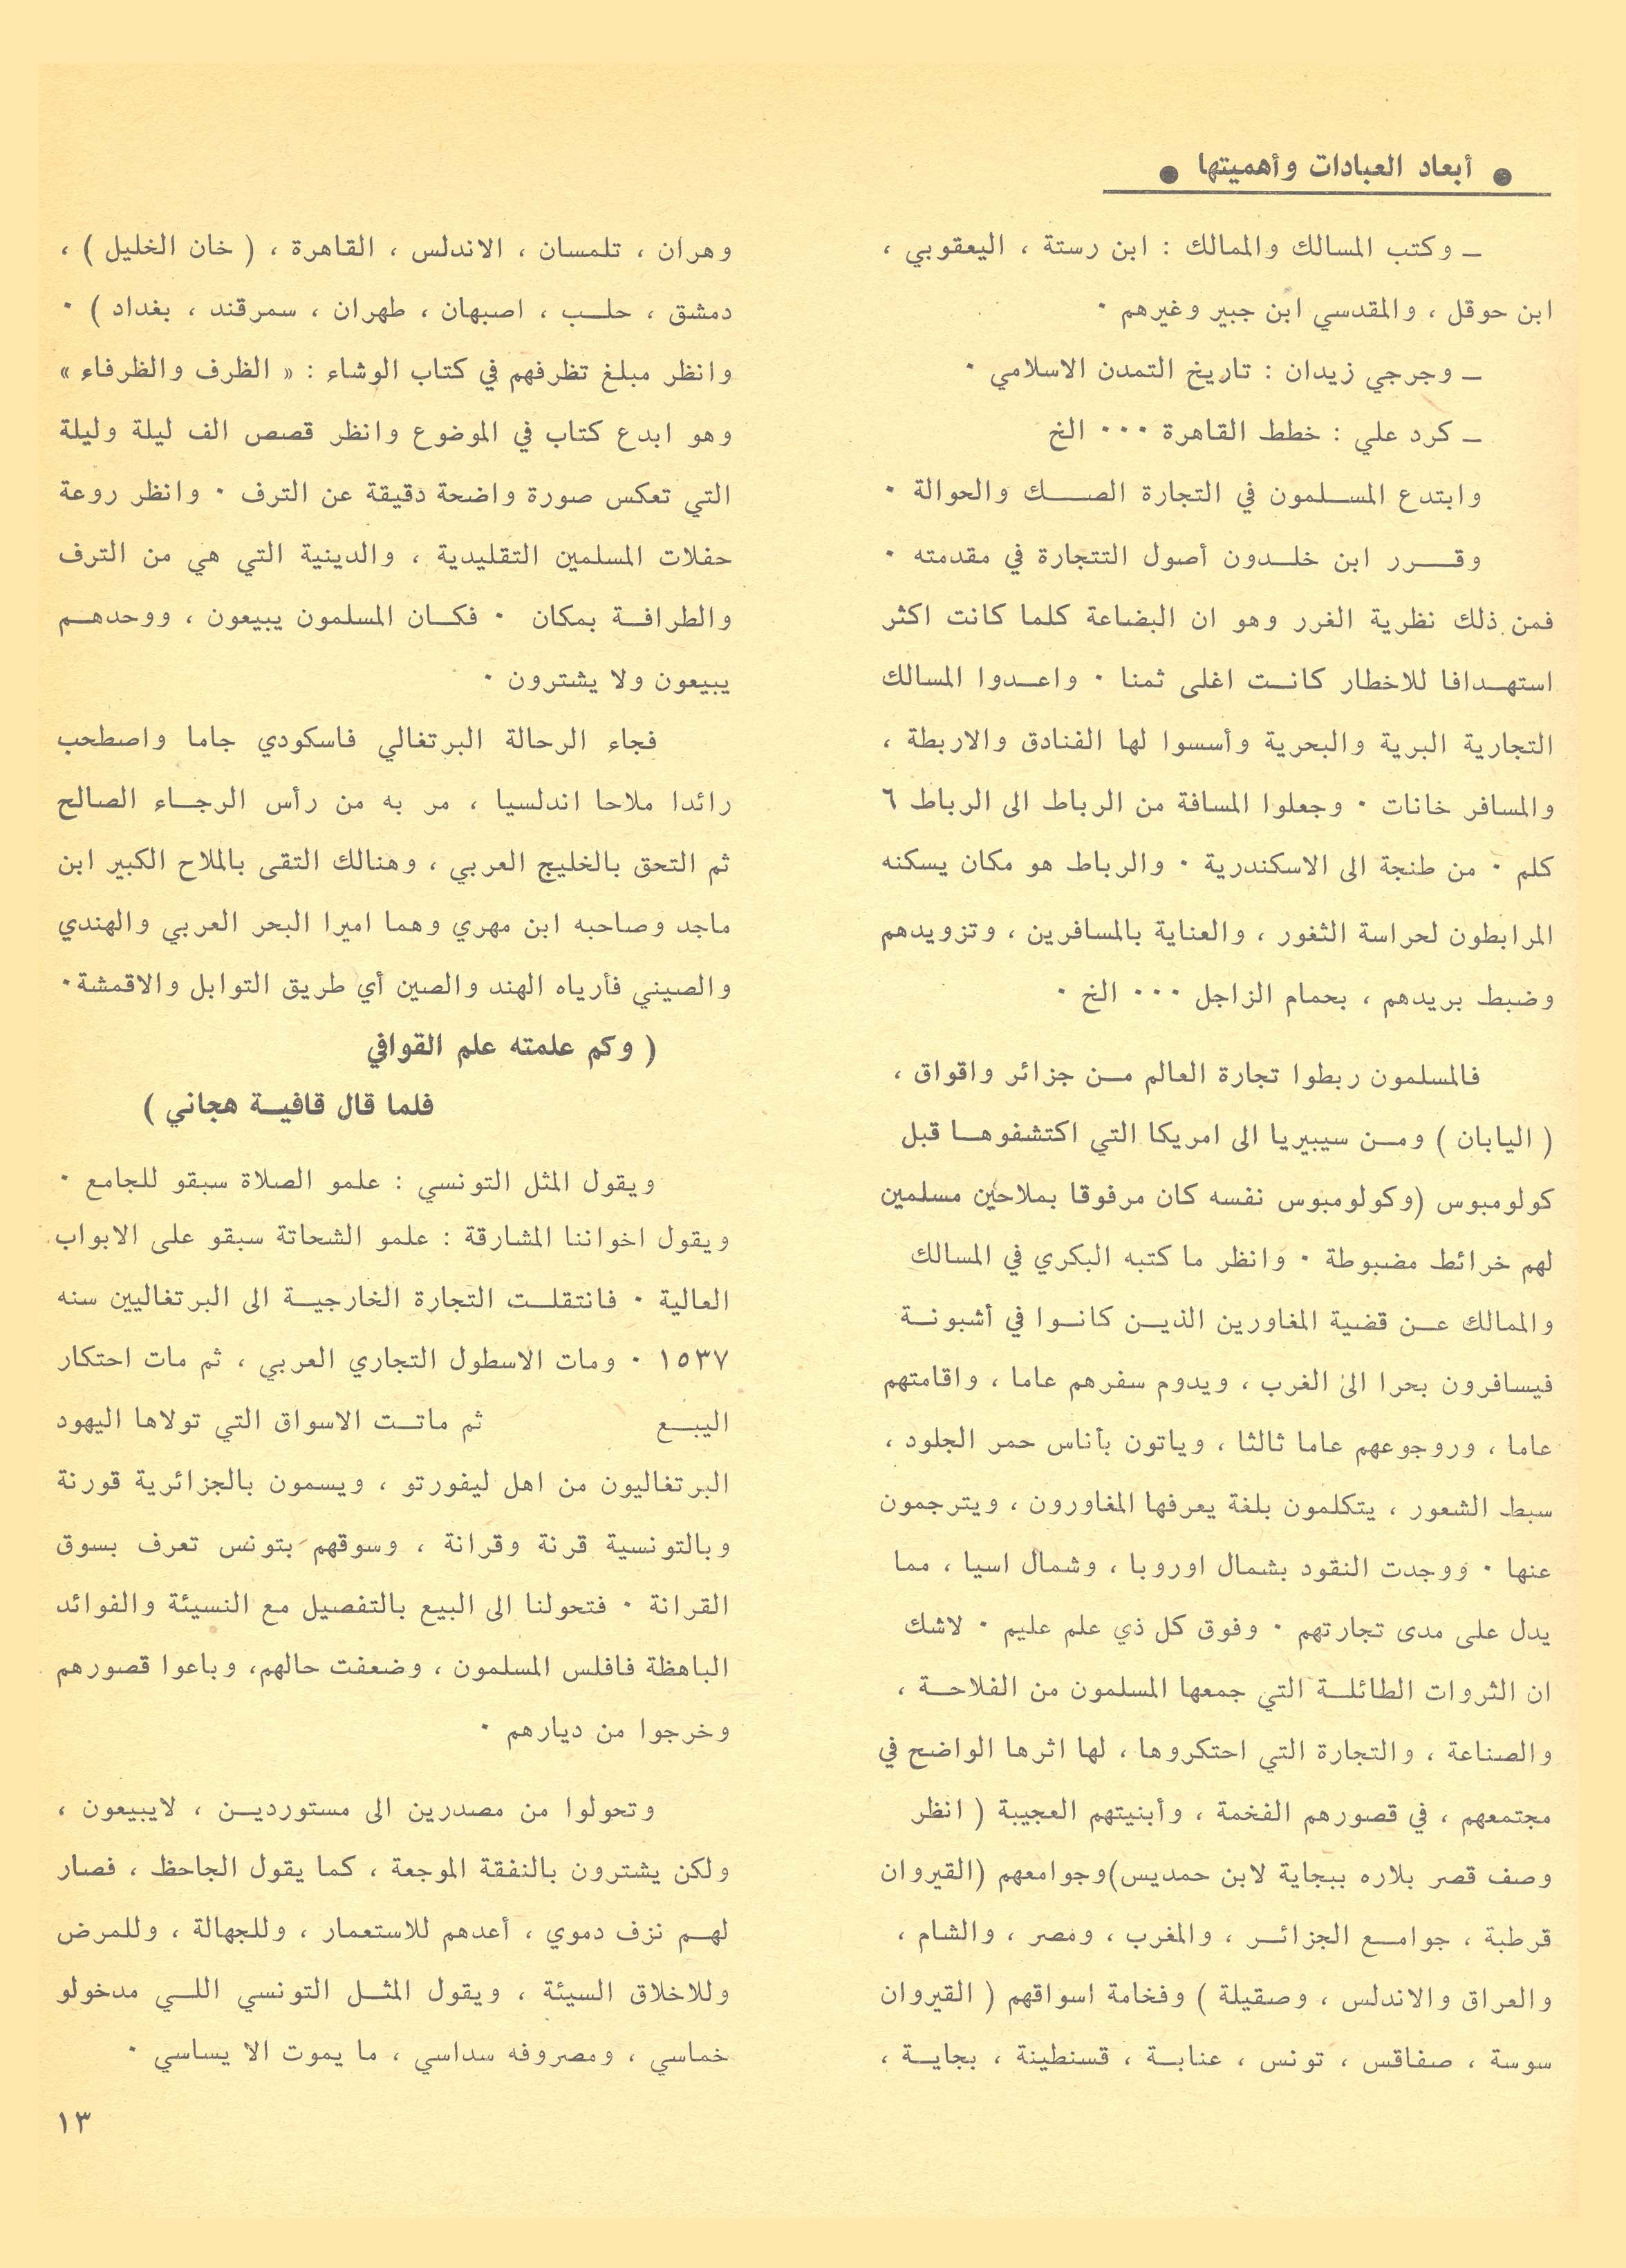 ● أبعاد العبادات وأهميتها ●
ـ وكتب المسالك والممالك : ابن رستة ، اليعقوبي ،
ابن حوقل ، والمقدسي ابن جبير وغيرهم ·
ـ وجرجي زيدان : تاريخ التمدن الاسلامي ·
ـ كرد علي : خطط القاهرة ··· الخ
وابتدع المسلمون في التجارة الصك والحوالة ·
وقرر ابن خلدون أصول التتجارة في مقدمته ·
فمن ذلك نظرية الغرر وهو ان البضاعة كلما كانت اكثر
استهدافا للاخطار كانت اغلى ثمنا · واعدوا المسالك
التجارية البرية والبحرية وأسسوا لها الفنادق والاربطة ،
والمسافر خانات · وجعلوا المسافة من الرباط الى الرباط ٦
كلم · من طنجة الى الاسكندرية · والرباط هو مكان يسكنه
المرابطون لحراسة الثغور ، والعناية بالمسافرين ، وتزويدهم
وضبط بريدهم ، بحمام الزاجل ··· الخ ·
فالمسلمون ربطوا تجارة العالم من جزائر واقواق ،
( اليابان ) ومن سيبيريا الى امريكا التي اكتشفوها قبل
كولومبوس (وكولومبوس نفسه كان مرفوقا بملاحين مسلمين
لهم خرائط مضبوطة · وانظر ما كتبه البكري في المسالك
والممالك عن قضية المغاورين الذين كانوا في أشبونة
فيسافرون بحرا الى الغرب ، ويدوم سفرهم عاما ، واقامتهم
عاما ، وروجوعهم عاما ثالثا ، وياتون بأناس حمر الجلود ،
سبط الشعور ، يتكلمون بلغة يعرفها المغاورون ، ويترجمون
عنها · ووجدت النقود بشمال اوروبا ، وشمال اسيا ، مما
يدل على مدى تجارتهم · وفوق كل ذي علم عليم · لاشك
ان الثروات الطائلة التي جمعها المسلمون من الفلاحة ،
والصناعة ، والتجارة التي احتكروها ، لها اثرها الواضح في
مجتمعهم ، في قصورهم الفخمة ، وأبنيتهم العجيبة ( انظر
وصف قصر بلاره ببجاية لابن حمديس)وجوامعهم (القيروان
قرطبة ، جوامع الجزائر ، والمغرب ، ومصر ، والشام ،
والعراق والاندلس ، وصقيلة ) وفخامة اسواقهم ( القيروان
سوسة ، صفاقس ، تونس ، عنابة ، قسنطينة ، بجاية ،
وهران ، تلمسان ، الاندلس ، القاهرة ، ( خان الخليل ) ،
دمشق ، حلب ، اصبهان ، طهران ، سمرقند ، بغداد ) ·
وانظر مبلغ تظرفهم في كتاب الوشاء : « الظرف والظرفاء »
وهو ابدع كتاب في الموضوع وانظر قصص الف ليلة وليلة
التي تعكس صورة واضحة دقيقة عن الترف · وانظر روعة
حفلات المسلمين التقليدية ، والدينية التي هي من الترف
والطرافة بمكان · فكان المسلمون يبيعون ، ووحدهم
يبيعون ولا يشترون ·
فجاء الرحالة البرتغالي فاسكودي جاما واصطحب
رائدا ملاحا اندلسيا ، مر به من رأس الرجاء الصالح
ثم التحق بالخليج العربي ، وهنالك التقى بالملاح الكبير ابن
ماجد وصاحبه ابن مهري وهما اميرا البحر العربي والهندي
والصيني فأرياه الهند والصين أي طريق التوابل والاقمشة·
( وكم علمته علم القوافي
فلما قال قافية هجاني )
ويقول المثل التونسي : علمو الصلاة سبقو للجامع ·
ويقول اخواننا المشارقة : علمو الشحاتة سبقو على الابواب
العالية · فانتقلت التجارة الخارجية الى البرتغاليين سنه
١٥٣٧ · ومات الاسطول التجاري العربي ، ثم مات احتكار
البيع ثم ماتت الاسواق التي تولاها اليهود
البرتغاليون من اهل ليفورتو ، ويسمون بالجزائرية قورنة
وبالتونسية قرنة وقرانة ، وسوقهم بتونس تعرف بسوق
القرانة · فتحولنا الى البيع بالتفصيل مع النسيئة والفوائد
الباهظة فافلس المسلمون ، وضعفت حالهم، وباعوا قصورهم
وخرجوا من ديارهم ·
وتحولوا من مصدرين الى مستوردين ، لايبيعون ،
ولكن يشترون بالنفقة الموجعة ، كما يقول الجاحظ ، فصار
لهم نزف دموي ، أعدهم للاستعمار ، وللجهالة ، وللمرض
وللاخلاق السيئة ، ويقول المثل التونسي اللي مدخولو
خماسي ، ومصروفه سداسي ، ما يموت الا يساسي ·
١٣